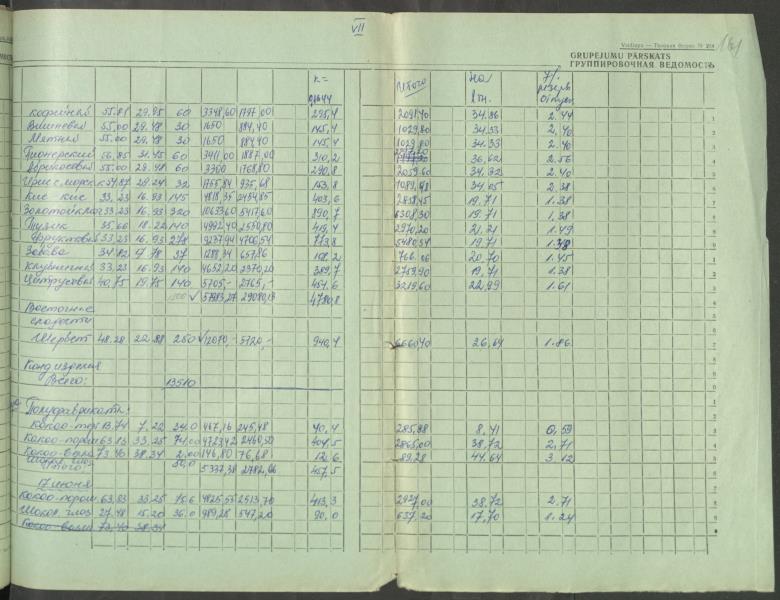 VII
161
Veidlapa — Типовая форма № 284
GRUPEJUMU PĀRSKATS
ГРУППИРОВОЧНАЯ ВЕДОМОСТЬ
К= Итого на 1 тн.
Кофейная 55.81 29.95 60 3348,60 1797,00 295,4 2091.40 34.86 2.44
Вишневая 55,00 29.48 30 1650 884,40 145,4 1029,80 34.33 2.40
Мятная 55.00 29.48 30 1650 884,40 145,4 1029.80 34.33 2.40
Пионерский 56,85 31.45 60 3411,00 1887,00 310,2 36,62 2.56
Абрикосовая 55,00 29.48 60 3300 1768,80 290,8 2059.60 34.32 2.40
Ирис 32 1755,84 935,68 153,8 1089,48 34.05 2.38
Кис кис 33,23 16.93 145 4818,35 2454,85 403,6 2858.45 19.71 1.38
Золотой ключ 33,23 16.93 320 10633,60 5417,60 890,7 6308.30 19.71 1.38
Тузик 35.66 18.22 140 4992,40 2550,80 419,4 2970.20 21.21 1.49
Фруктовая 33,23 16.93 278 9237,94 4706,54 773,8 5480,34 19.71 1.38
Забава 34.82 17.78 37 1288,34 657,86 108.2 766.06 20,70 1.45
Клубничная 33,23 16.93 140 4652,20 2370,20 389,7 2759.90 19.71 1.38
Цитрусовая 40,75 19.75 140 5705,- 2765,- 454.6 3219,60 22,99 1.61
29080,13 4780,8
Восточные
сладости
Шербет 48.28 22.88 250 12070,- 5720,- 940,4 6660,40 26.64 1.86
Конд изделия
Всего: 13510
Полуфабрикаты:
13,74 7.22 34.0 467,16 245,48 40,4 285,88 8,41 0,59
Какао-порош 63.83 33,25 74,00 4723,42 2460,50 404,5 2865,00 38.72 2.71
73.40 38,34 2.00 146,80 76,68 12,6 89,28 44,64 3.12
Итого: 5337,38 2782,66 457,5
17 июня
Какао-порош 63,83 33,25 75.6 4825,55 2513,70 413,3 2927,00 38,72 2.71
Шокол. глаз 27,48 15,20 36.0 989,28 547,20 90,0 637.20 17,70 1.24
73,40 38.34